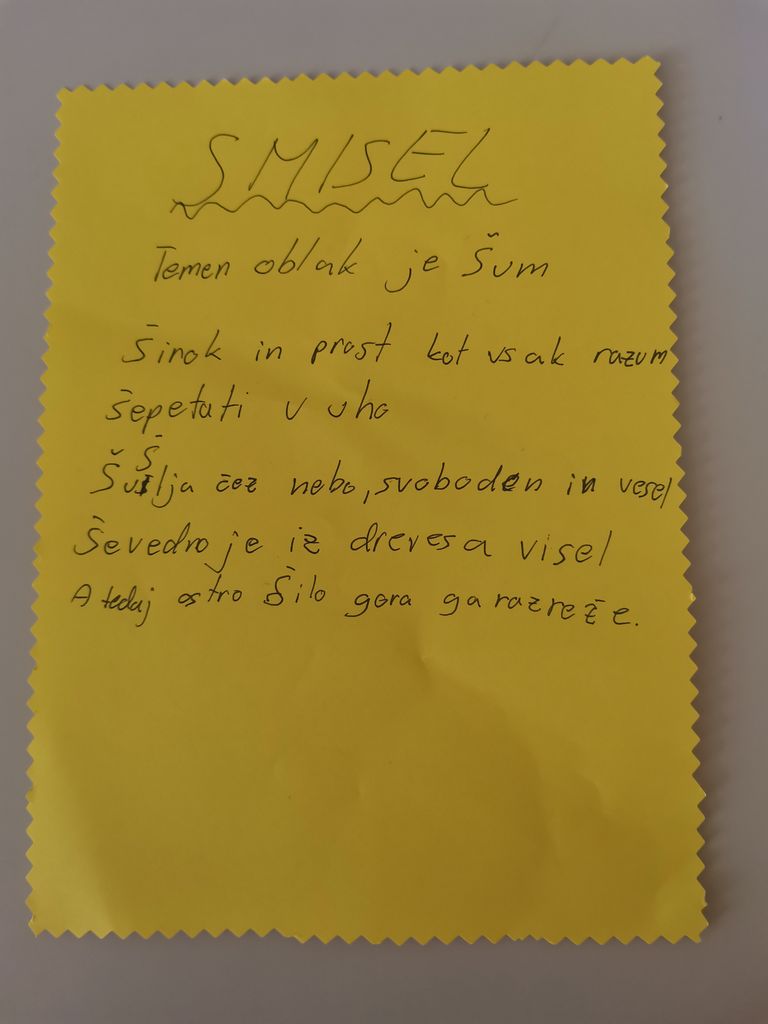 SMISEL
Temen oblak je Šum
Širok in prost kot vsak razum
šepetati v uho
Šušlja čez nebo, svoboden in vesel
Ševedno je iz drevesa visel
A tedaj ostro Šilo gora ga razreže.